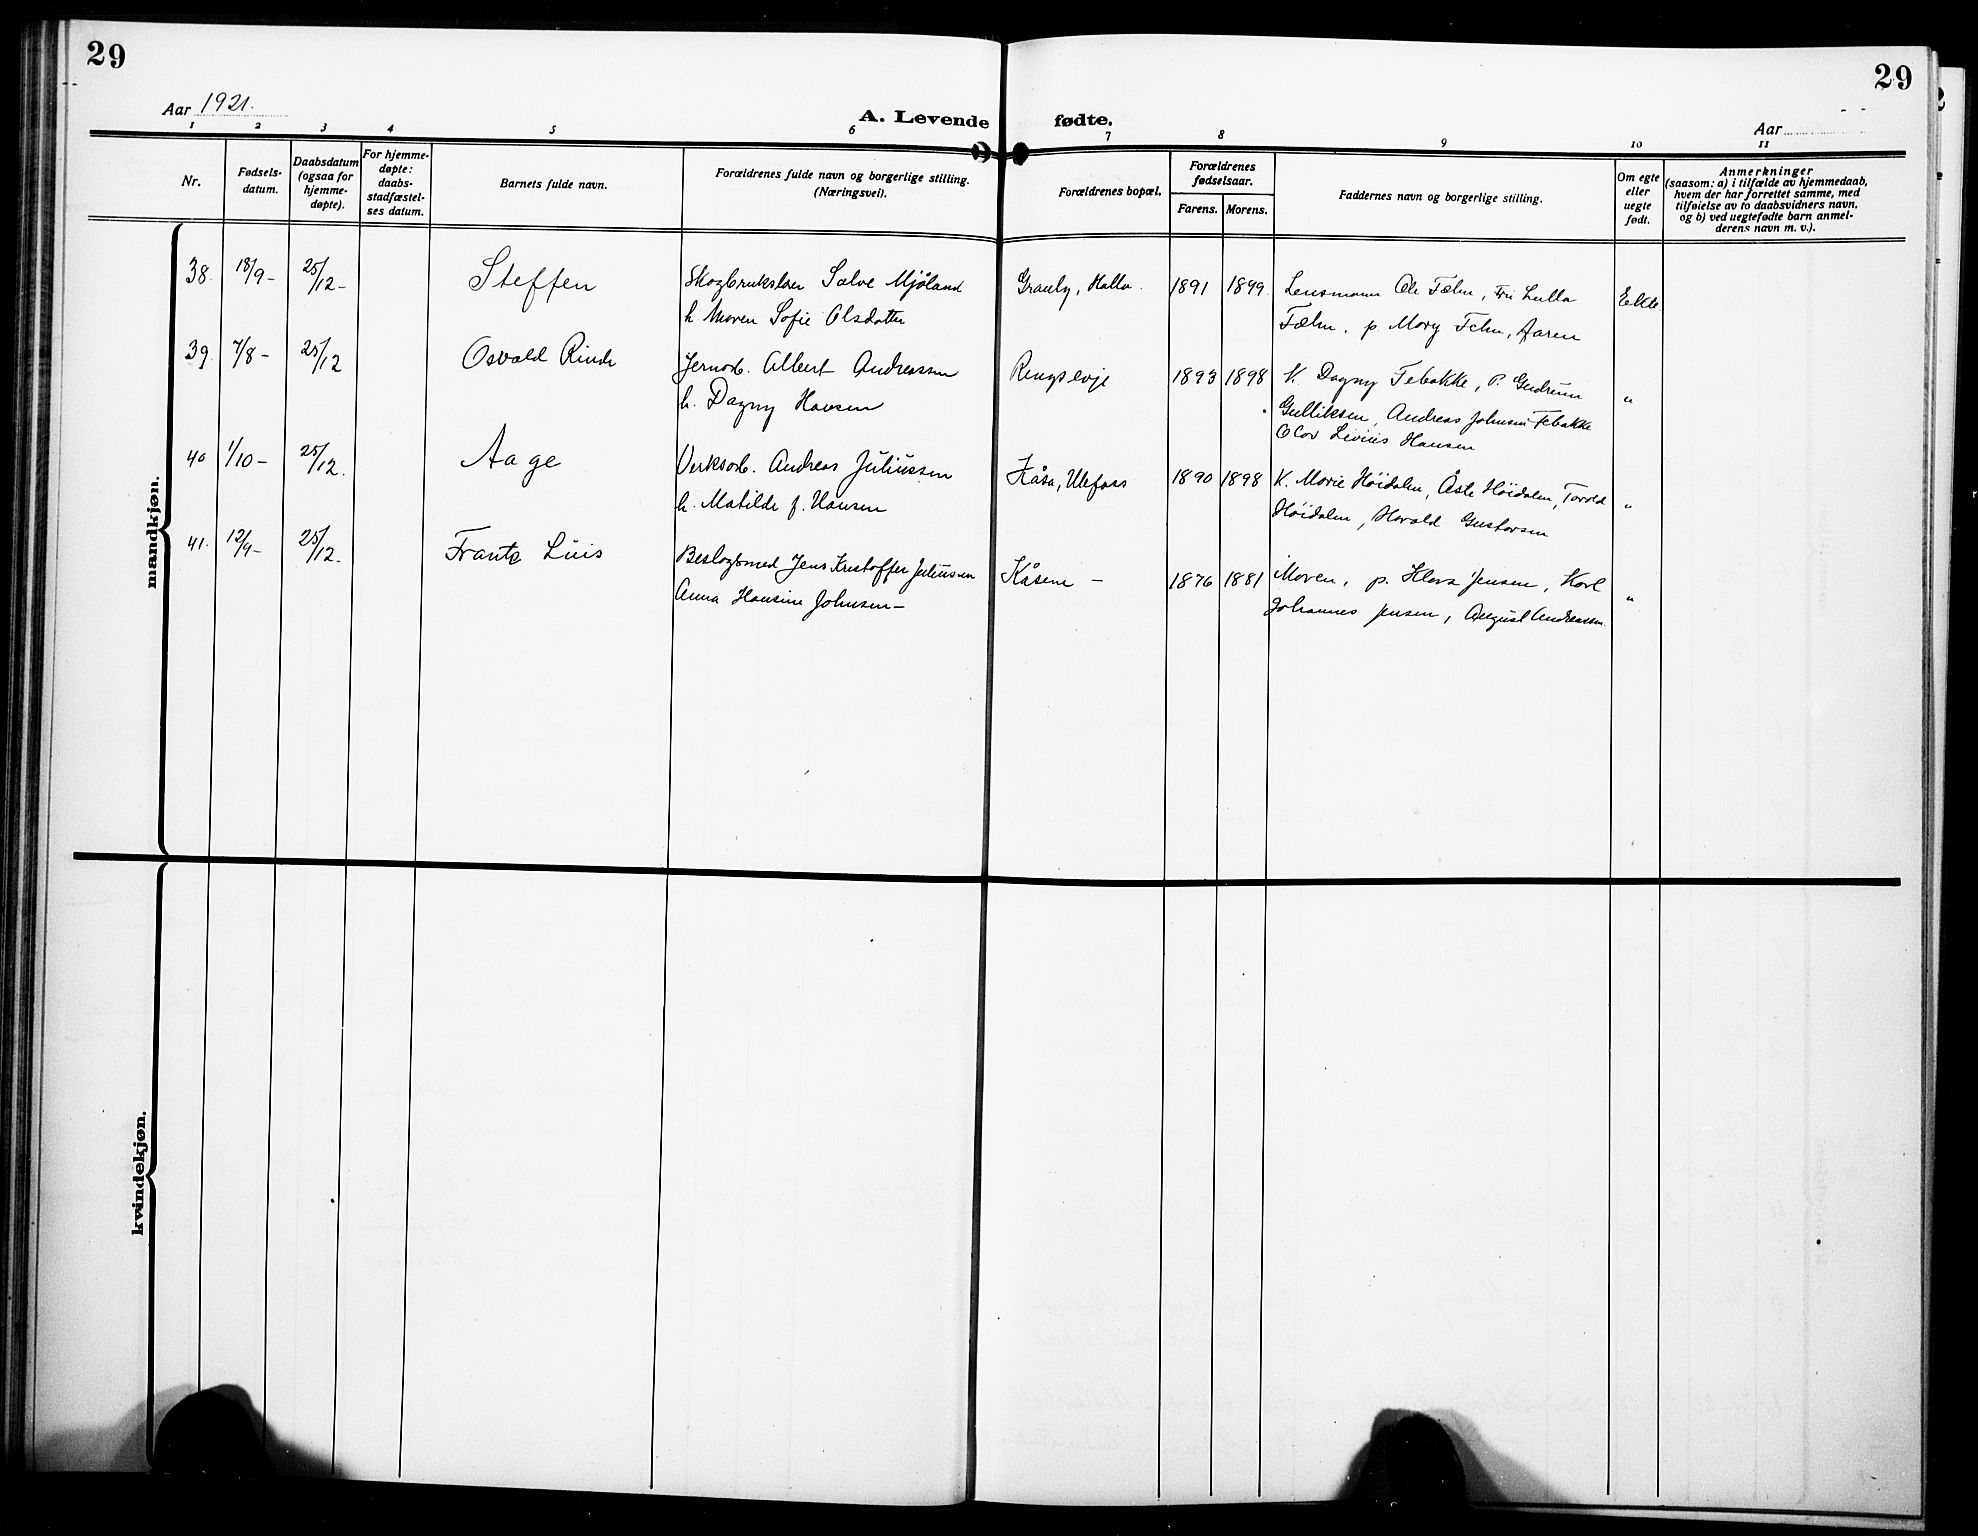 29
29
Aar 1921.
A. Levende fødte.
Aar
1 2 3 4 5 6 7 8 9 10 11
Nr.
Fødsels-
datum.
Daabsdatum
(ogsaa for
hjemme-
døpte).
For hjemme-
døpte:
daabs-
stadfæstel-
ses datum.
Barnets fulde navn.
Forældrenes fulde navn og borgerlige stilling.
(Næringsvei).
Forældrenes bopæl.
Forældrenes
fødselsaar.
Farens. Morens.
Faddernes navn og borgerlige stilling.
Om egte
eller
uegte
født.
Anmerkninger
(saasom: a) i tilfælde av hjemmedaab,
hvem der har forrettet samme, med
tilføielse av to daabsvidners navn,
og b) ved uegtefødte barn anmel-
derens navn m. v.).
mandkjøn.
38. 18/9- 25/12- Steffen Salve Mjåland 1891 1899. Lensmann Ole
h. Maren Sofie Olsdatter p. Mary Faren
39. 7/8- 25/12 Osvald Jernarb. Albert Andreassen 1893 1898 K. Dagny Tebakke, P. Gudrun "
h. Dagny Hansen Gulliksen, Andreas Johnsen Tebakke
Olav Hansen
40 1/10- 25/12. Aage Verksarb. Andreas Juliussen Kåsa, Ulefoss 1890 1898 K. Marie Høidalen, Åste Høidalen, Torvald "
h. Matilde f. Hansen Høidalen, Harald Gustavsen
41. 12/9- 25/12. Frantz Luis Jens Kristoffer Juliussen Kåsene - 1876 1881 Moren, p. Klara Jensen, Karl "
Anna Hansine Johnsen- Johannes Jensen, August Andreassen.
kvindekjøn.